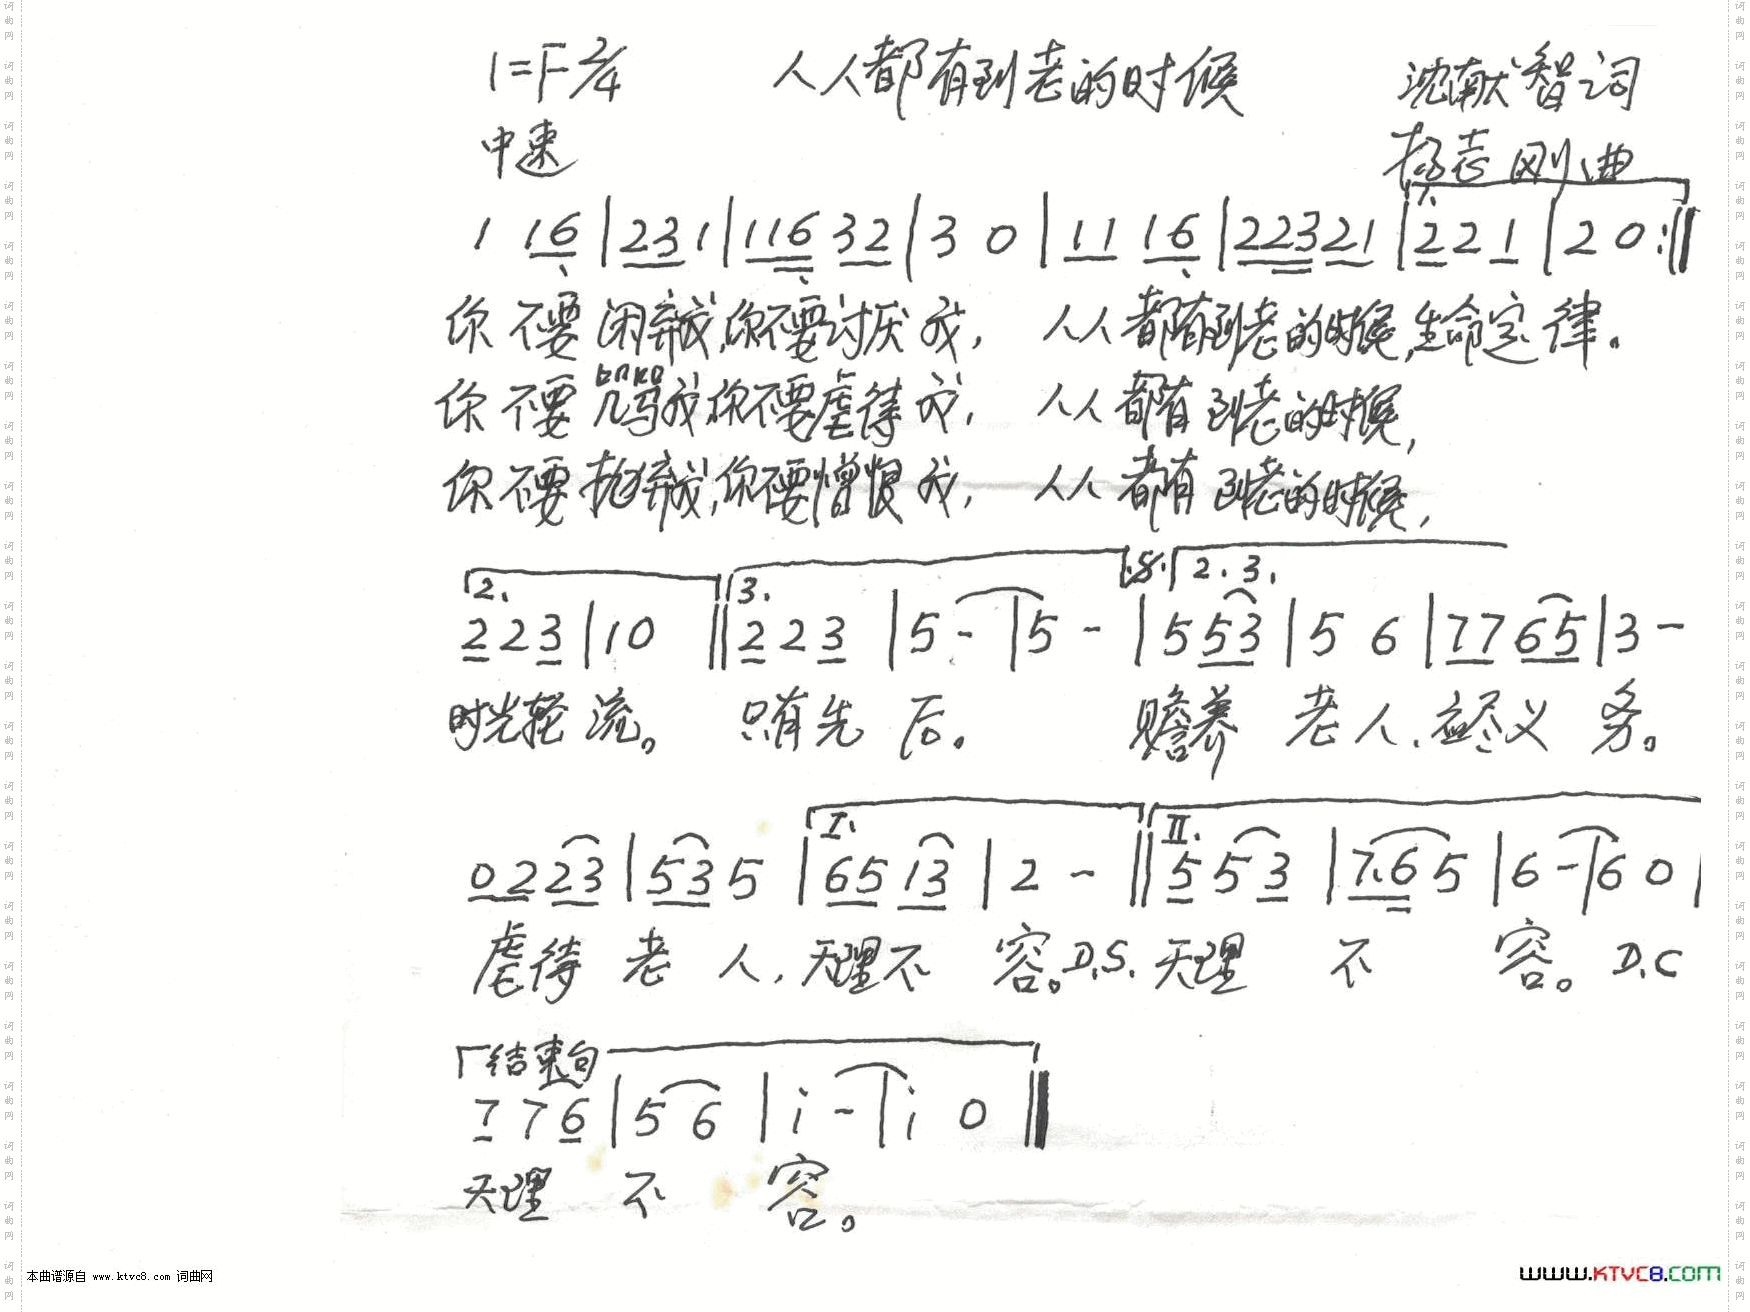 1=F 2/4 人人都有到老的时候 沈献智词
中速 杨志刚曲
1.
1 16 | 231 | 116 32 | 3 0 | 11 16 | 22321 | 221 | 20 :||
你不要闲弃我,你不要讨厌我, 人人都有到老的时候,生命定律。
你不要叽骂我,你不要虐待我, 人人都有到老的时候,
你不要抛弃我,你不要憎恨我, 人人都有到老的时候,
2. 3. .S. 2.3.
223 | 10 || 223 | 5 - | 5 - | 553 | 5 6 | 77 65 | 3 -
时光轮流。 只有先后。 赡养老人,应尽义务。
I. II.
0223 | 535 | 65 13 | 2 - || 553 | 7.65 | 6 - | 6 0 |
虐待老人,天理不容。D.S. 天理不容。D.C
结束句
776 | 56 | i - | i 0 ||
天理不容。
本曲谱源自 www.ktvc8.com 词曲网
www.KTVC8.com